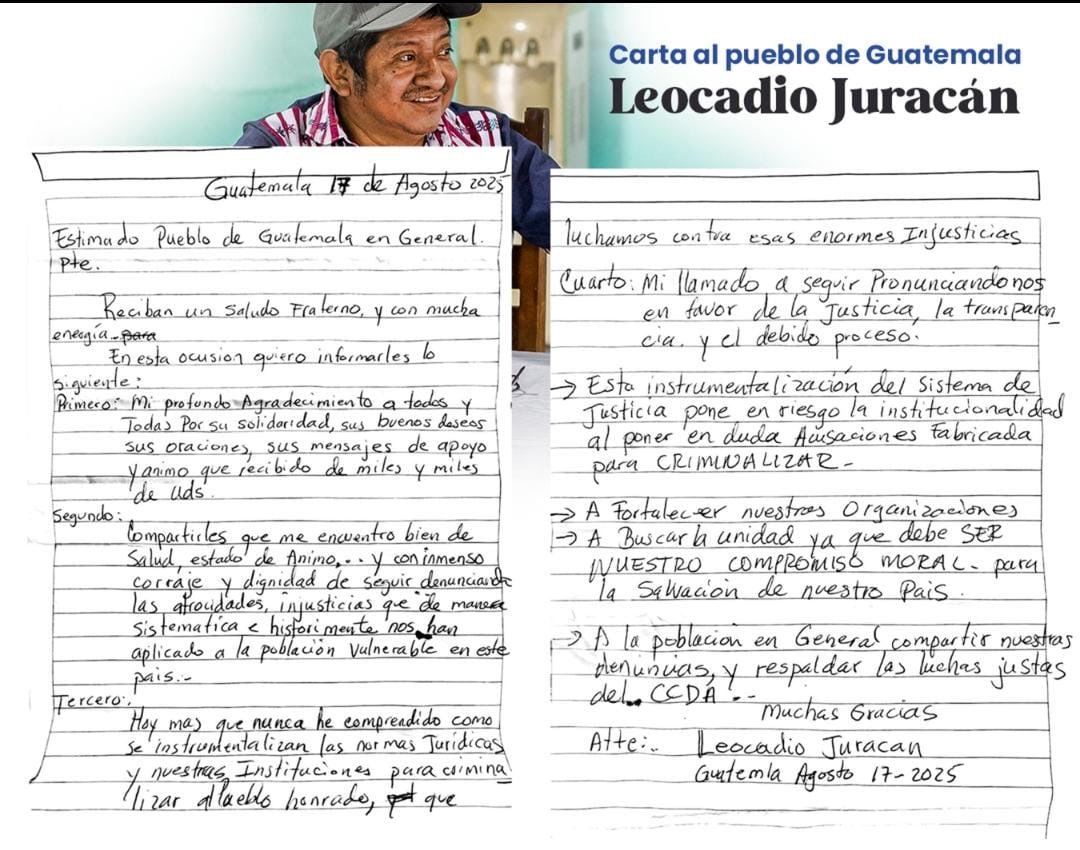 Carta al pueblo de Guatemala
Leocadio Juracán
Guatemala 17 de Agosto 2025
Estimado Pueblo de Guatemala en General.
Pte.
Reciban un Saludo Fraterno, y con mucha
energía. para
En esta ocasion quiero informarles lo
siguiente:
Primero: Mi profundo Agradecimiento a todos y
Todas Por su solidaridad, sus buenos deseos
sus oraciones, sus mensajes de apoyo
y animo que recibido de miles y miles
de Uds.
Segundo:
Compartirles que me encuentro bien de
Salud, estado de Animo,... y con inmenso
corraje y dignidad de seguir denunciando
las atrocidades, injusticias que de manera
sistematica e historimente nos han
aplicado a la población Vulnerable en este
pais.-
Tercero:.
Hoy mas que nunca he comprendido como
se instrumentalizan las normas Jurídicas
y nuestras Instituciones para crimina
lizar al Pueblo honrado, que
luchamos contra esas enormes Injusticias
Cuarto: Mi llamado a seguir Pronunciandonos
en favor de la Justicia, la transparen
cia. y el debido proceso.
→ Esta instrumentalización del Sistema de
Justicia pone en riesgo la institucionalidad
al poner en duda Acusaciones Fabricada
para CRIMINALIZAR-
→ A Fortalecer nuestras Organizaciones
→ A Buscar la unidad ya que debe SER
NUESTRO COMPROMISO MORAL. para
la Salvación de nuestro Pais.
→ A la población en General, compartir nuestras
denuncias, y respaldar las luchas justas
del CCDA..-
Muchas Gracias
Atte:. Leocadio Juracan
Guatemla Agosto 17-2025